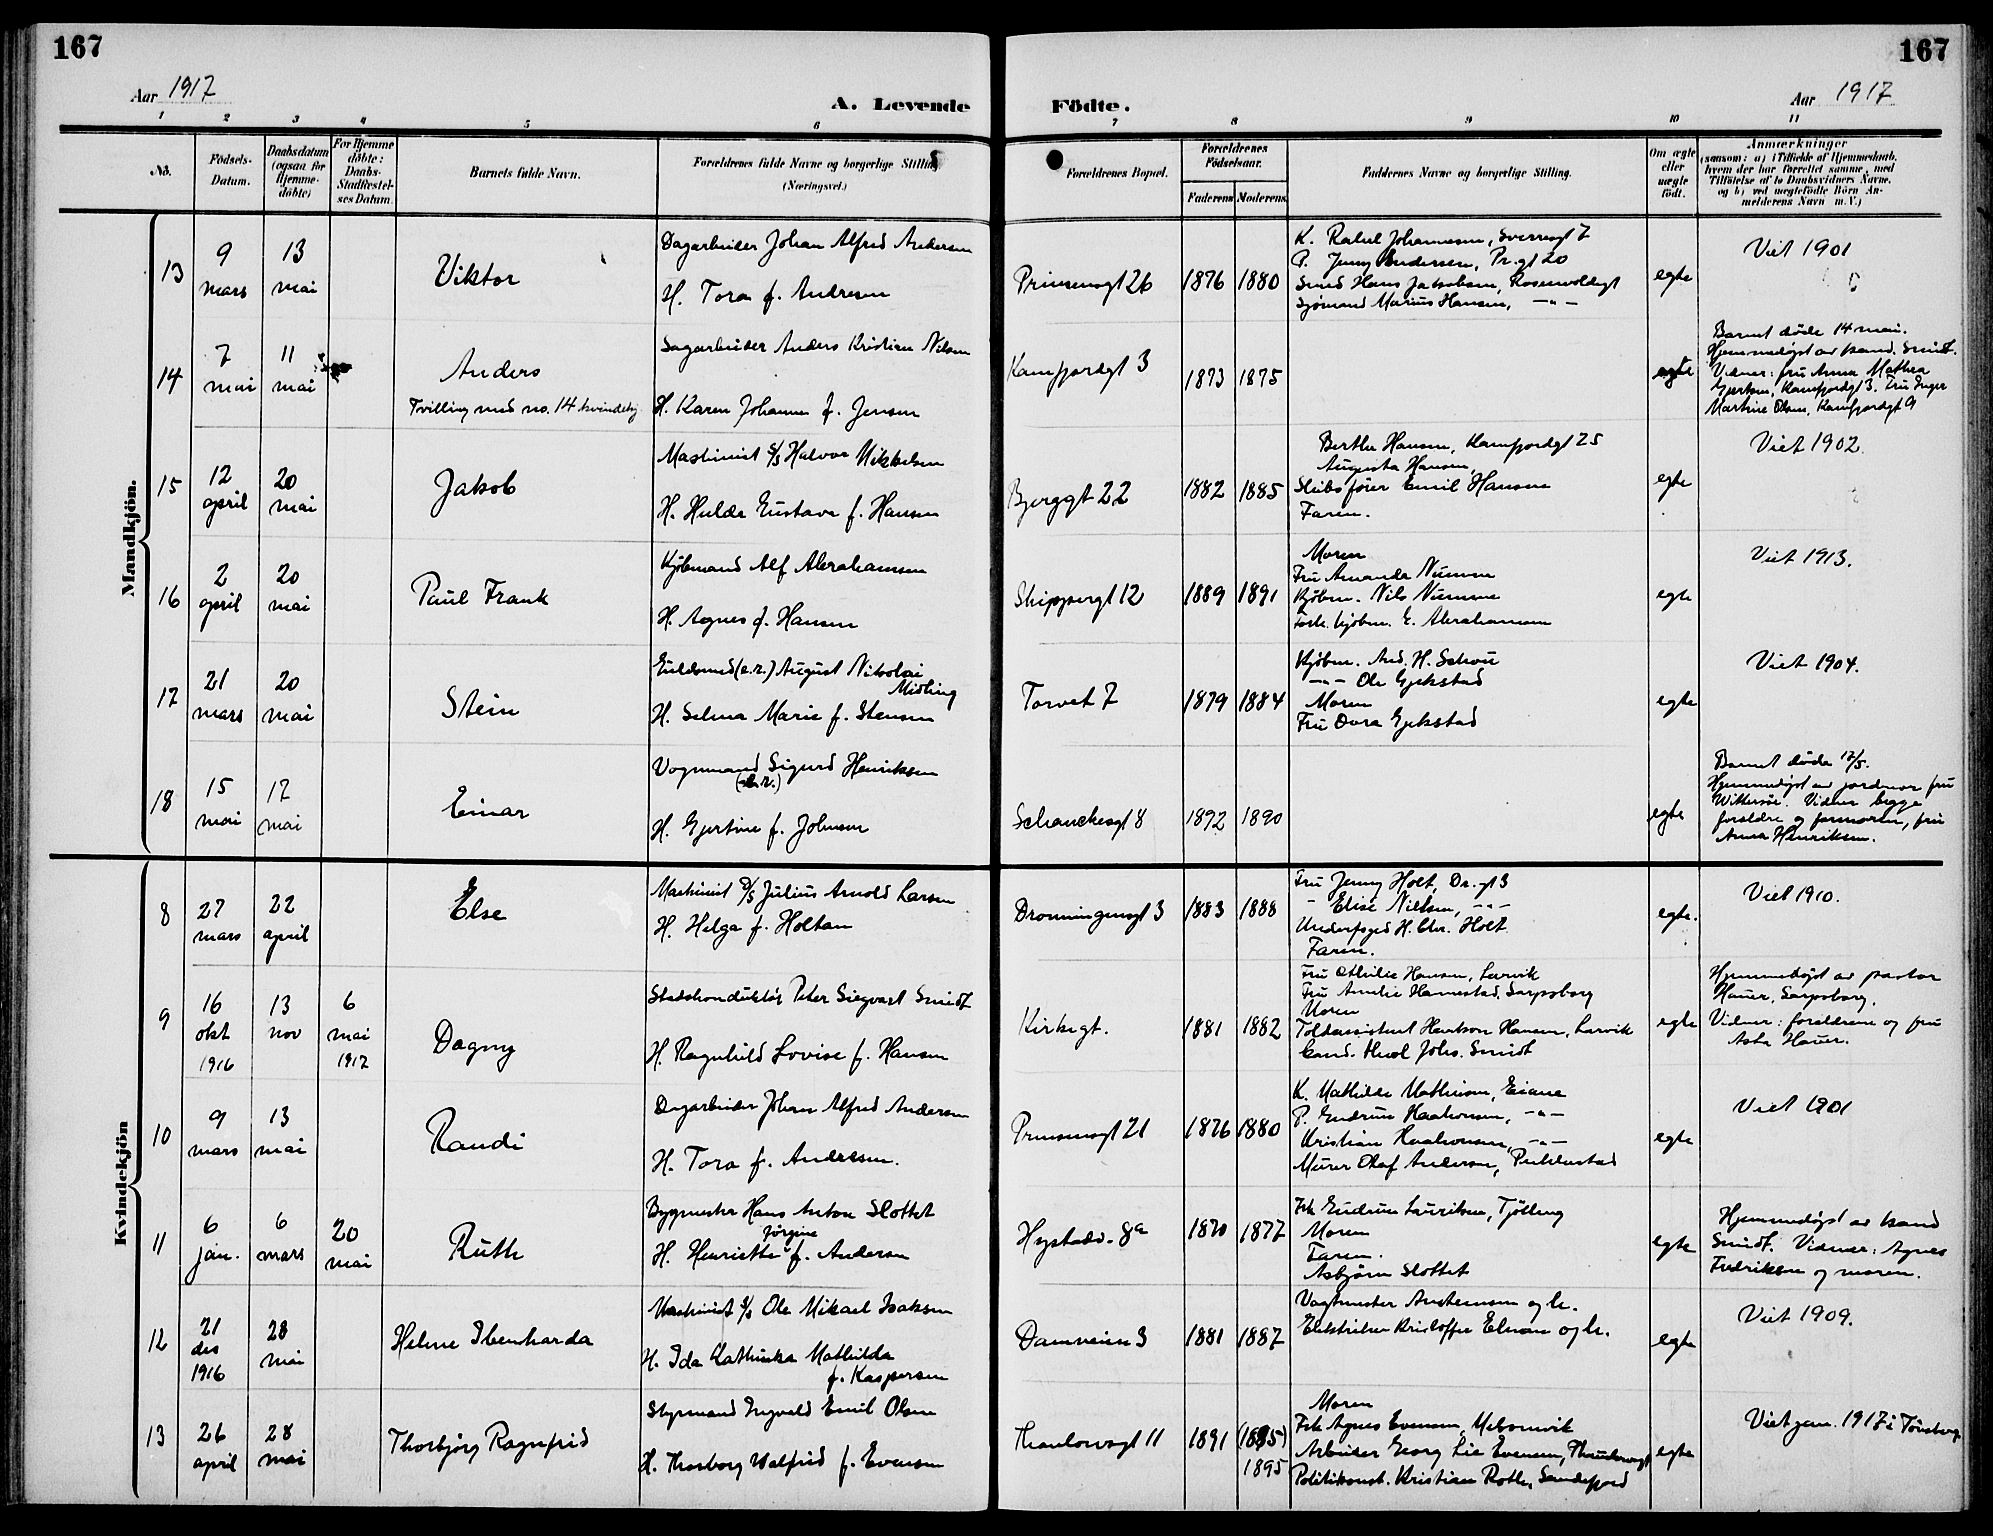 167
167
Aar 1917
A. Levende
Födte.
Aar 1917
1 2 3 4 5 6 7 8 9 10 11
No.
Födsels-
Datum.
Daabsdatum
(ogsaa for
Hjemme-
döbte)
For Hjemme
döbte:
Daabs-
Stadfæstel-
ses Datum.
Barnets fulde Navn.
Forældrenes fulde Navne og borgerlige Stilling
(Næringsvei.)
Forældrenes Bopæl.
Forældrenes
Födselsaar.
Faderens
Moderens
Faddernes Navne og borgerlige Stilling.
Om ægte
eller
uægte
födt.
Anmærkninger
(saasom: a) i Tilfælde af Hjemmedaab,
hvem der har forrettet samme, med
Tilföielse af to Daabsvidners Navne,
og b) ved uægtefödte Börn An-
melderens Navn m. V.)
Mandkjön.
13
9
mars
13
mai
Viktor
Dagarbeider Johan Alfred Andersen
H. Tora f. Andresen
Prinsensgt 26
1876
1880
K. Rakel Johannesen, Sverresgt 7
P. Jenny Andersen, Pr.gt 20
Smed Hans Jakobsen, Rosenvoldsgt
Sjömand Marius Hansen, -"-
egte
Viet 1901
14
7
mai
11
mai
Anders
Tvilling med no. 14 kvindekj.
Sagarbeider Anders Kristian Nilsen
H. Karen Johanne f. Jensen
Kamfjordgt 3
1873
1875
egte
Barnet döde 14 mai.
Hjemmedöpt av kand. Smidt.
Vidner: fru Anna Mathea
Gjertsen, Kamfjordgt 3. Fru Inger
Martine Olsen, Kamfjordgt 9
15
12
april
20
mai
Jakob
Maskinist d/s Halvor Mikkelsen
H. Hulda Gustava f. Hansen
Bjerggt 22
1882
1885
Berthe Hansen, Kamfjordgt 25
Augusta Hansen,
Skibsförer Emil Hansen
Faren.
egte
Viet 1902.
16
2
april
20
mai
Paul Frank
Kjöbmand Alf Abrahamsen
H. Agnes f. Hansen
Skippergt 12
1889
1891
Moren
Fru Amanda Numme
Kjöbm. Nils Numme
Forh. kjöbm. E. Abrahamsen
egte
Viet 1913.
17
21
mars
20
mai
Stein
Guldsmed (e.r.) August Nikolai
Midling
H. Selma Marie f. Stensen
Torvet 7
1879
1884
Kjöbm. And. H. Schou
-"- Ole Gjekstad
Moren
Fru Dora Gjekstad
egte
Viet 1904.
18
15
mai
17
mai
Einar
Vognmand Sigurd Henriksen
(e.r.)
H. Gjertine f. Johnsen
Schanckesgt 8
1892
1890
egte
Barnet döde 17/5.
Hjemmedöpt av jordmor fru
Wittersöe. Vidner begge
foreldre og farmoren, fru
Anna Henriksen.
Kvindekjön
8
27
mars
22
april
Else
Maskinist d/s Julius Arnold Larsen
H. Helga f. Holtan
Dronningensgt 3
1883
1888
Fru Jenny Holt, Dr.-gt 3
" Elise Nielsen, -"-
Underfoged H. Chr. Holt
Faren.
egte.
Viet 1910.
9
16
okt
1916
13
nov
6
mai
1917
Dagny
Stadskonduktör Peter Siegvart Smidt
H. Ragnhild Lovise f. Hansen
Kirkegt.
1881
1882
Fru Othilie Hansen, Larvik
Fru Amelie Hannestad, Sarpsborg
Moren
Toldassistent Haakon Hansen, Larvik
Cand. theol Johs. Smidt
egte
Hjemmedöpt av pastor
Hauer, Sarpsborg.
Vidner: foreldrene og fru
Asta Hauer.
10
9
mars
13
mai
Randi
Dagarbeider Johan Alfred Andersen
H. Tora f. Andresen.
Prinsensgt 21
1876
1880
K. Mathilde Mathisen, Eiane
P. Gudrun Haakonsen, -"-
Kristian Haakonsen, -"-
Murer Olaf Andersen, Pukkestad
egte
Viet 1901
11
6
jan.
6
mars
20
mai
Ruth
Bygmester Hans Anton Slottet
Jörgine
H. Henriette f. Andersen
Hystadv. 8a
1870
1877
Frk Gudrun Lauritsen, Tjölling
Moren
Faren.
Asbjörn Slottet
egte
Hjemmedöpt av kand
Smidt. Vidner: Agnes
Fredriksen og moren.
12
21
des
1916
28
mai
Helene Ibenharda
Maskinist d/s Ole Mikael Isaksen
H. Ida Kathinka Mathilda
f. Kaspersen
Damveien 3
1881
1887
Vagtmester Austensen og h.
Elektriker Kristoffer Elnan og h.
egte
Viet 1909.
13
26
april
28
mai
Thorbjörg Ragnfrid
Styrmand Ingvald Emil Olsen
H. Thorborg Valfrid f. Evensen
Thaulowsgt 11
1891
(1895)
1895
Moren
Frk Agnes Evensen, Mebonvik
Arbeider Georg Lie Evensen,
Politikonst. Kristian Roth, Sandefjord
egte
Viet jan. 1917 i Tönsberg